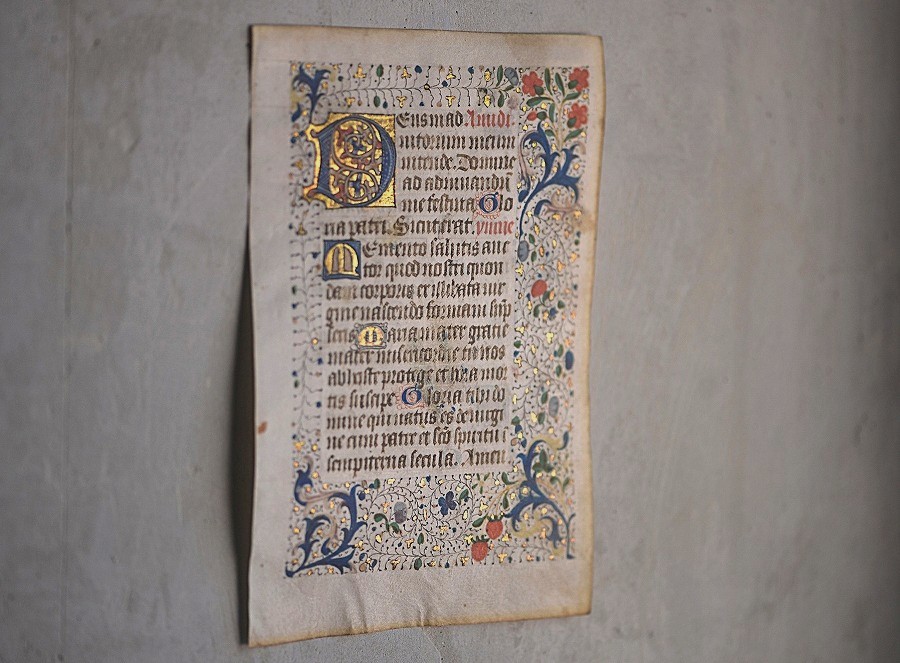 Deus in ad Amdi
iutorium meum
intende. Domine
ad adiuuandū
me festina. Glo
ria patri. Sicut erat. ymnꝰ
Memento salutis auc
tor quod nostri quon
dam corporis ex illibata vir
gine nascendo formam sūp
seris Maria mater gratie
mater misericordie tu nos
ab hoste protege et hora mor
tis suscipe Gloria tibi do
mine qui natus es de virgi
ne cum patre et scō spiritu i
sempiterna secula. Amen